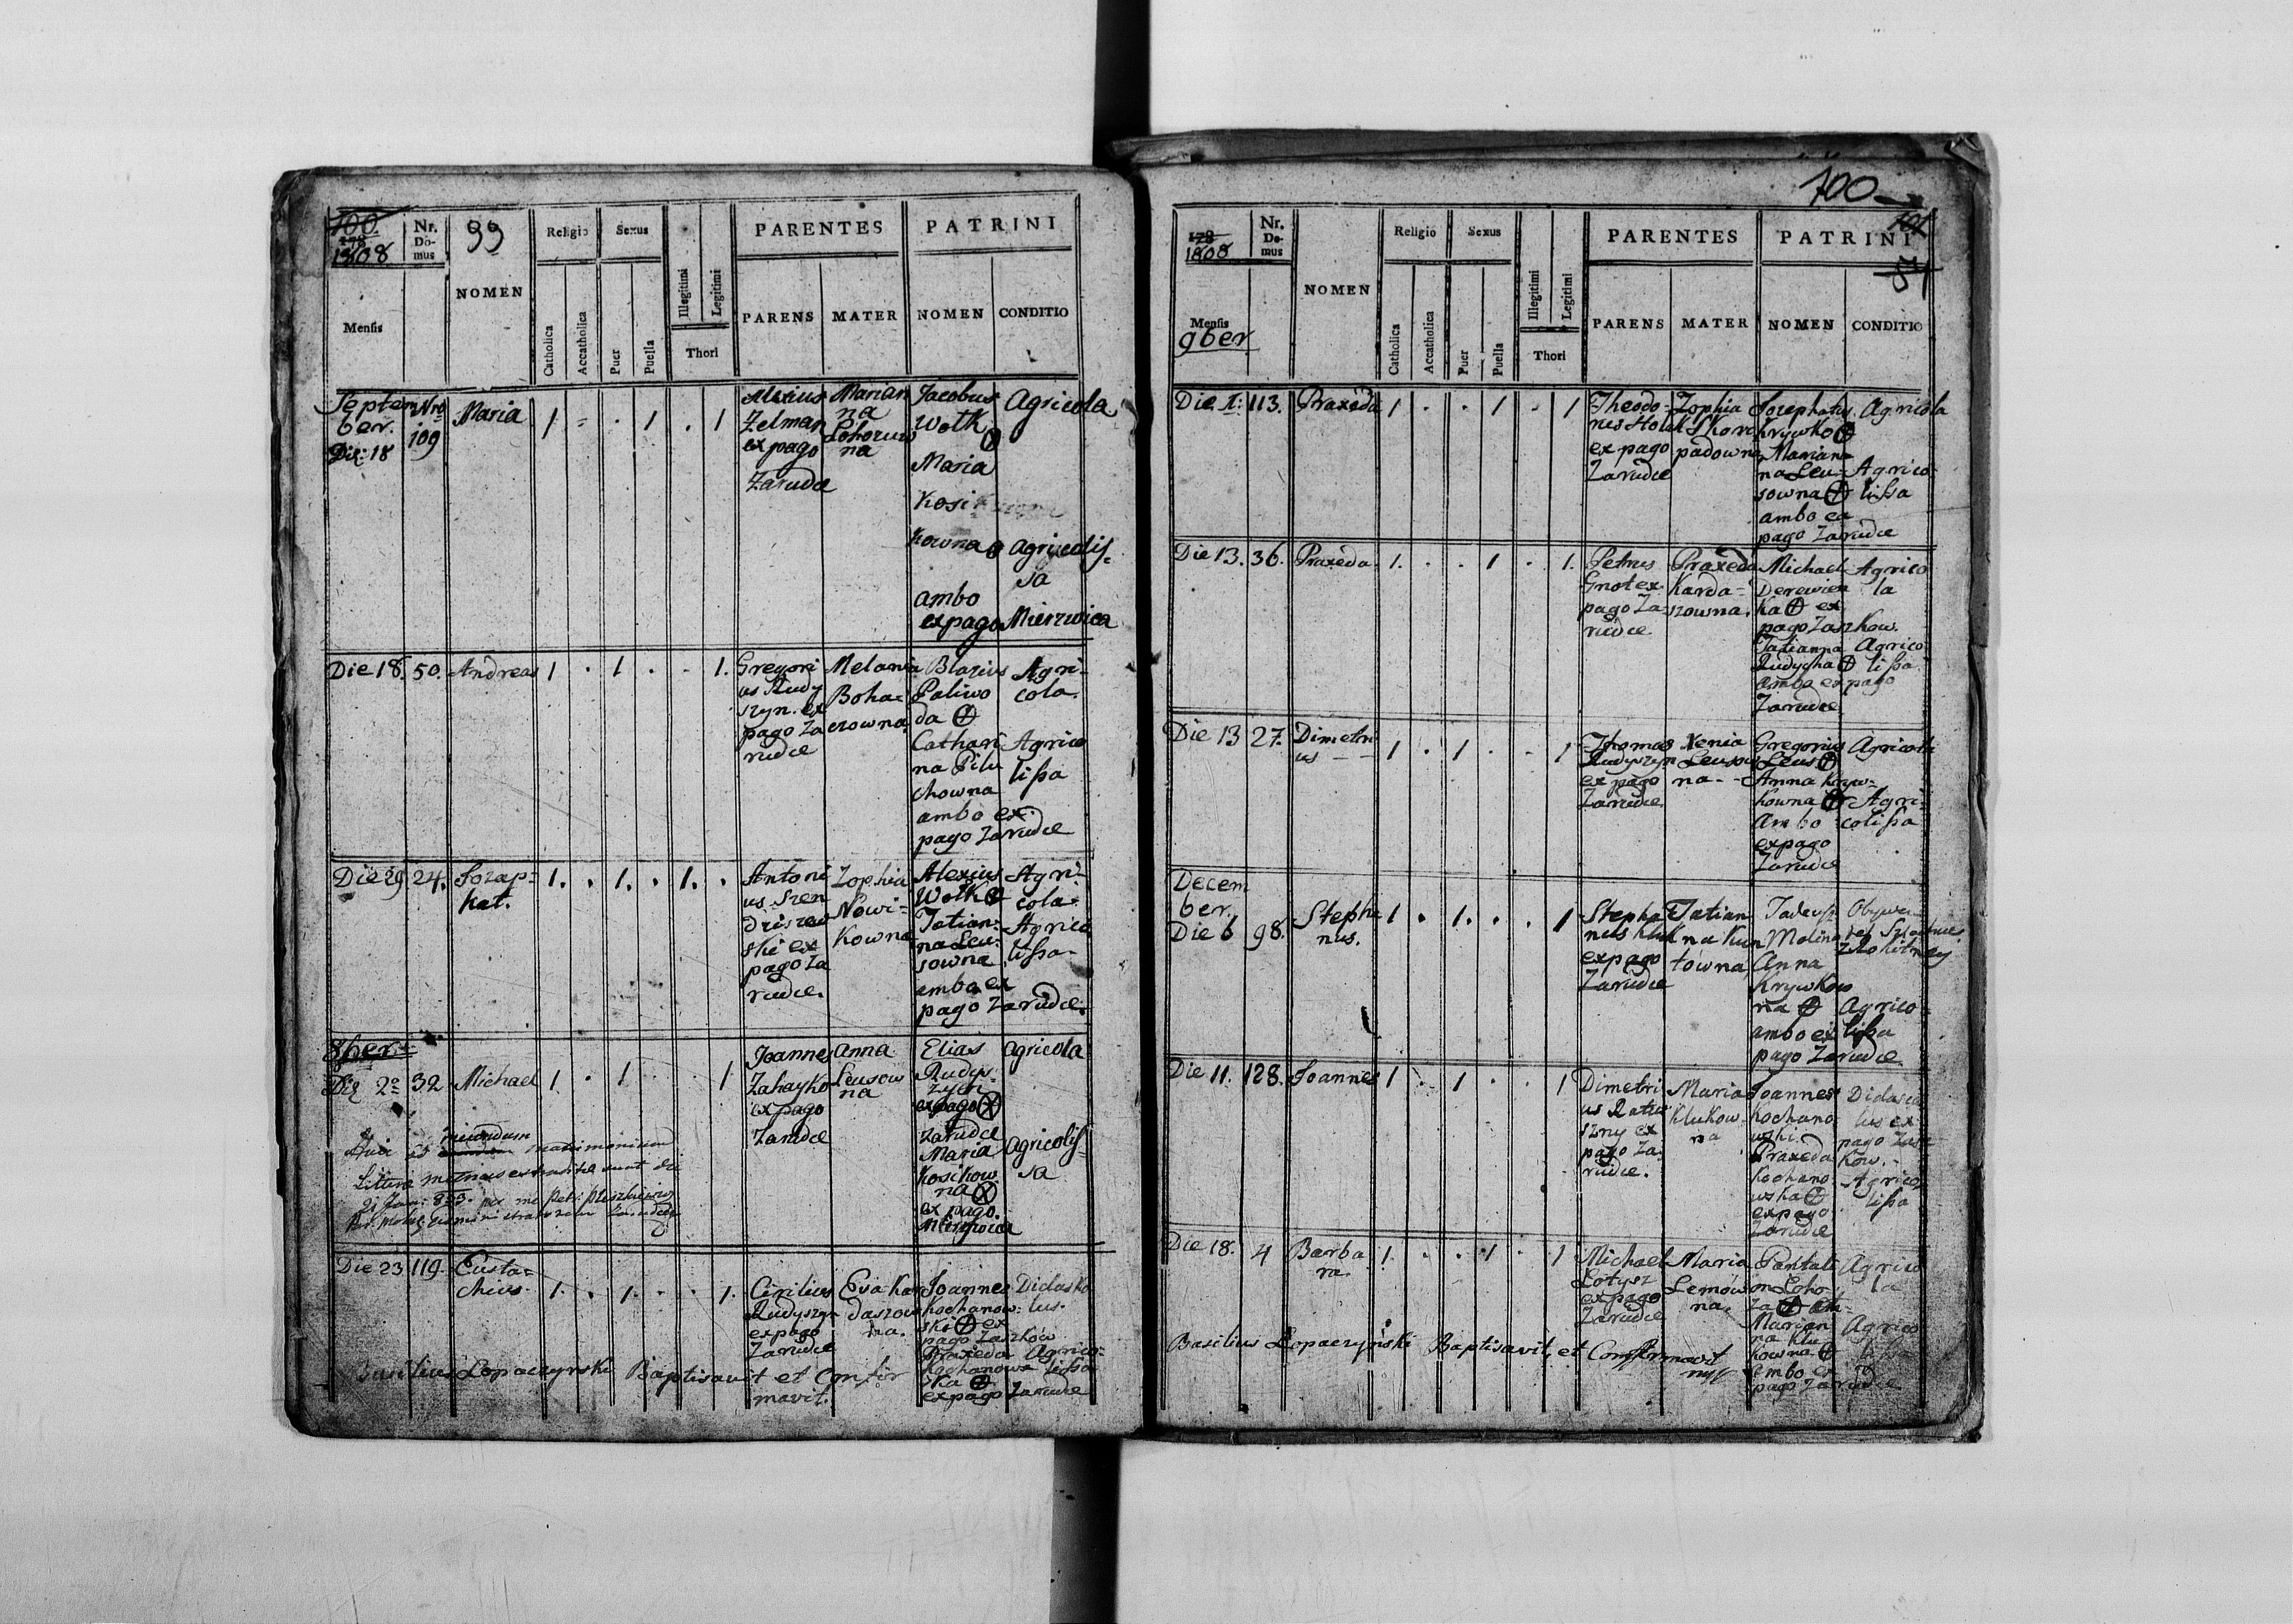 100.
178
1808
Nr.
Do-
mus
99
NOMEN
Religio
Sexus
PARENTES
PATRINI
Mensis
Catholica
Accatholica
Puer
Puella
Illegitimi
Legitimi
Thori
PARENS
MATER
NOMEN
CONDITIO
Septem
ber.
Die 18
Nro
109
Maria
1
1
1
Alexius
Zelman
ex pago
Zarudce
Marian
na
na
Jacobus
Wolk
Maria
Kosi
kowna
ambo
ex pago Mierzwica
Agricola
Agricolis-
sa
Die 18.
50.
Andreas
1 . 1 . . 1.
Gregori
us Rudy
szyn. ex
pago Za
rudce
Melania
Boha-
czowna
Blazius
Paliwo
da
Cathari
na Pilu
chowna
ambo ex
pago Zarudce
Agri-
cola.
Agrico
lissa
Die 29
24.
Jozap-
hat.
1. . 1. . 1. .
Antoni
us Szen
driszew
ski ex
pago Za
rudce.
Zophia
Nowi-
kowna
Alexius
Wolk
Tatian-
na Leu-
sowna
ambo ex
pago Zarudce.
Agri-
cola-
Agrico
lissa-
8ber-
Die 2a
32
Michael
1 . 1 . 1
Joannes
Zahayko
ex pago
Zarudce
Anna
Leusow
na
Elias
Rudys-
zyn
ex pago
Zarudce
Maria
Kosikow
na
ex pago.
Mierzwica
Agricola
Agricolis-
sa
matrimonium
Die 23
119.
Eusta-
chius.
1. . 1. . . 1.
Cirilius
Rudyszyn
ex pago
Zarudce
Eva Kar
daszow
na.
Joannes
Kochanow-
ski ex
pago Zaszków
Praxeda
Kochanows
ka
ex pago Zarudce
Didasko
lus.
Agrico-
lissa
Basilius Lopaczynski Baptisavit et Confir
mavit.
100
101
54
178
1808
Nr.
Do-
mus
NOMEN
Religio
Sexus
PARENTES
PATRINI
Mensis
9ber
Catholica
Accatholica
Puer
Puella
Illegitimi
Legitimi
Thori
PARENS
MATER
NOMEN
CONDITIO
Die 1:
113.
Praxeda
1 . . 1 . 1
Theodo-
rus
ex pago
Zarudce
Zophia
Skoro
padowna
Jozephatus
Krywko
Marian-
na Leu-
sowna
ambo ex
pago Zarudce
Agricola
Agrico-
lissa
Die 13.
36.
Praxeda
1. . . 1 . 1.
Petrus
Gnot ex
pago Za-
rudce
Praxeda
Karda-
szowna.
Michael
Derewien
ka ex
pago Zaszkow.
Tatianna
Rudycha
ambo ex pago
Zarudce
Agrico
la
Agrico
lissa
Die 13
27.
Dimetri
us
1 . 1 . . 1
Thomas
Rudyszyn
ex pago
Zarudce
Xenia
Leusow
na
Gregorius
Leus
Anna Kryw-
kowna
Ambo
ex pago
Zarudce
Agricola
Agri-
colissa
Decem
ber.
Die 6
98.
Stepha
nus.
1 . 1. . . 1
Stepha
nus Kluk
ex pago
Zarudce
Tatian
na Kun
towna
Tadeusz
Molin
Anna
Krywkow
na
ambo ex
pago Zarudce
Agrico-
lissa
Die 11.
128.
Joannes
1 . 1 . . 1
Dimetri
us Ratu
szny ex
pago Za-
rudce.
Maria
Klukow
na
Joannes
Kochano
wski.
Praxeda
Kochano
wska
ex pago
Zarudce
Didasco
lus ex
pago Zasz
kow.
Agrico
lissa
Die 18.
4
Barba
ra.
1. . . 1 . 1
Michael
Lotysz
ex pago
Zarudce
Maria
Lemow
na.
Pantale
on Loho
za
Marian
na Klu
kowna
Ambo ex
pago Zarudce
Agrico
la
Agrico
lissa
Basilius Lopaczynski Baptisavit, et Confirmavit